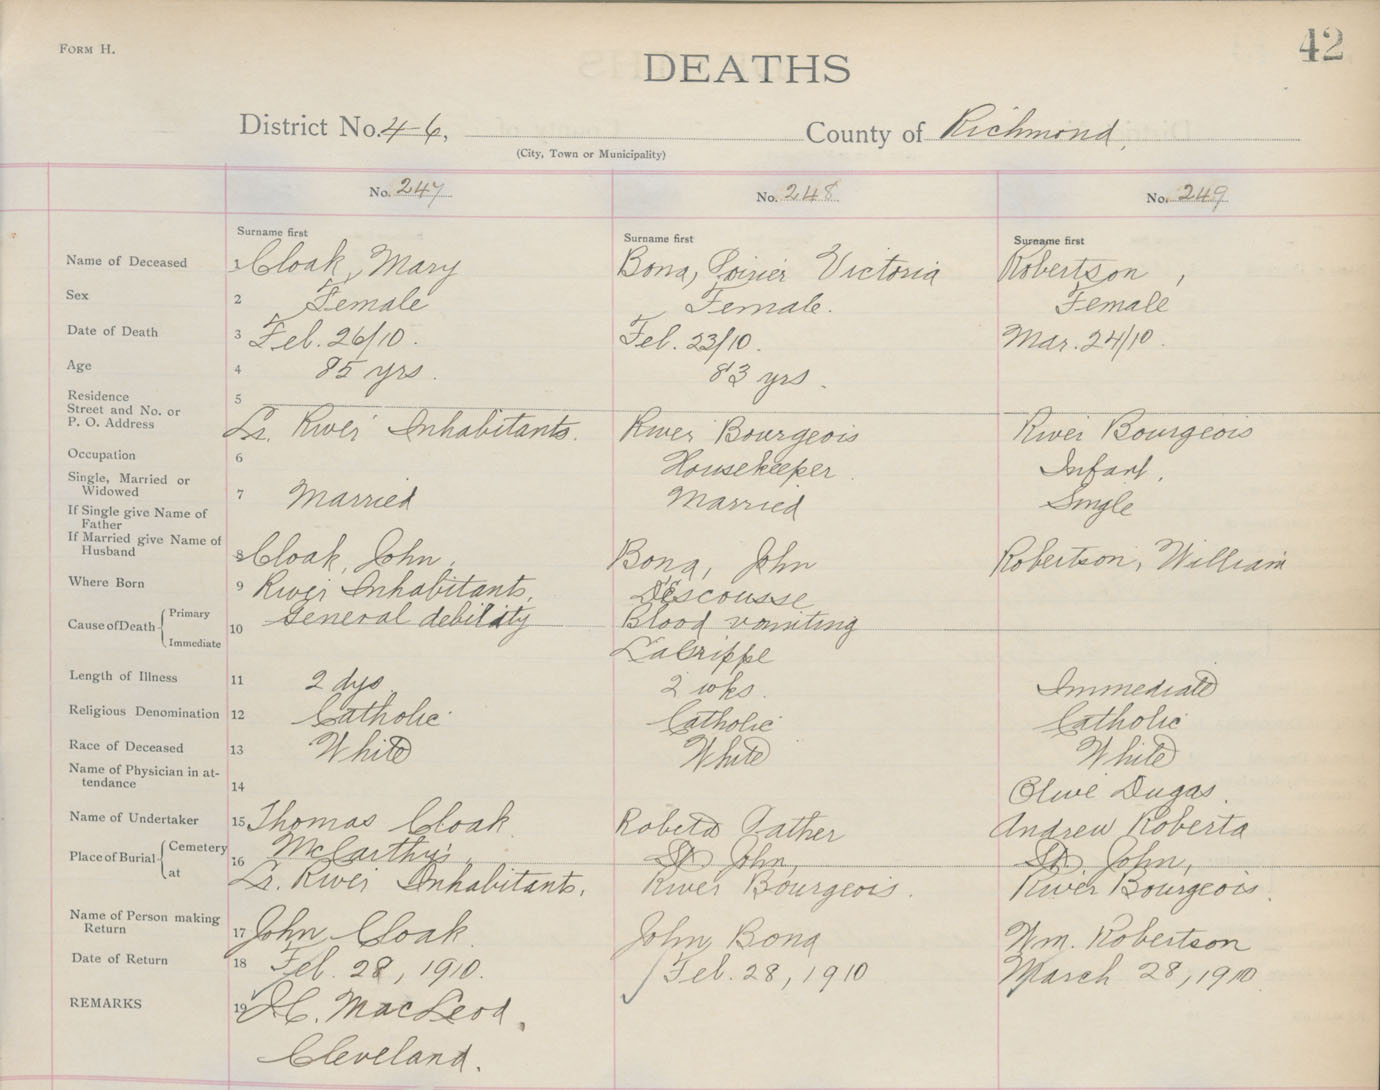 FORM H.
42
DEATHS
District No. 4-6, County of Richmond,
(City, Town or Municipality)
No. 247 No. 248 No. 249
Surname first Surname first Surname first
Name of Deceased 1 Cloak, Mary Bona, Poirier Victoria Robertson,
Sex 2 Female Female. Female
Date of Death 3 Feb. 26/10. Feb. 23/10. Mar. 24/10.
Age 4 85 yrs. 83 yrs.
Residence 5
Street and No. or
P. O. Address Lr. River Inhabitants. River Bourgeois River Bourgeois
Occupation 6 Housekeeper Infant.
Single, Married or
Widowed 7 Married Married Single
If Single give Name of
Father
If Married give Name of
Husband 8 Cloak, John. Bona, John Robertson, William
Where Born 9 River Inhabitants. DEscousse
Cause of Death Primary General debility Blood vomiting
10
Immediate LaGrippe
Length of Illness 11 2 dys 2 wks. Immediate
Religious Denomination 12 Catholic Catholic Catholic
Race of Deceased 13 White White White
Name of Physician in at-
tendance 14 Olive Dugas.
Name of Undertaker 15 Thomas Cloak Andrew Roberta
Place of Burial Cemetery 16 McCarthy's, St John, St. John,
at Lr. River Inhabitants. River Bourgeois. River Bourgeois.
Name of Person making
Return 17 John Cloak. John Bona Wm. Robertson
Date of Return 18 Feb. 28, 1910. Feb. 28, 1910 March 28, 1910
REMARKS 19 MacLeod,
Cleveland.